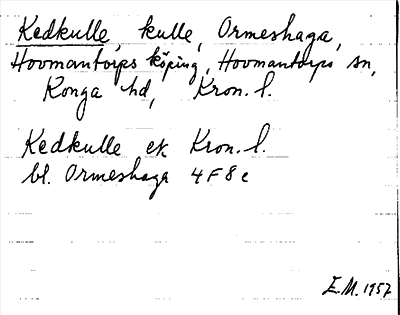 Kedkulle, kulle, Ormeshaga,
Hovmantorps köping, Hovmantorps sn,
Konga hd, Kron. l.
Kedkulle ek Kron. l.
bl. Ormeshaga 4F8c
E.M. 1957